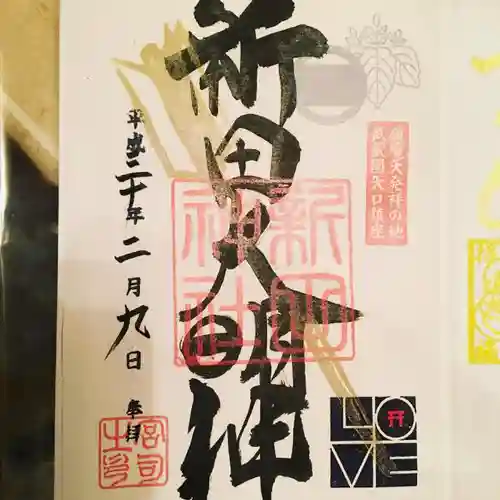 破魔矢発祥の地
武蔵国矢口鎮座
新田大明神
新田
神社
平成三十年二月九日 奉拝
宮司
之印
LO
VE